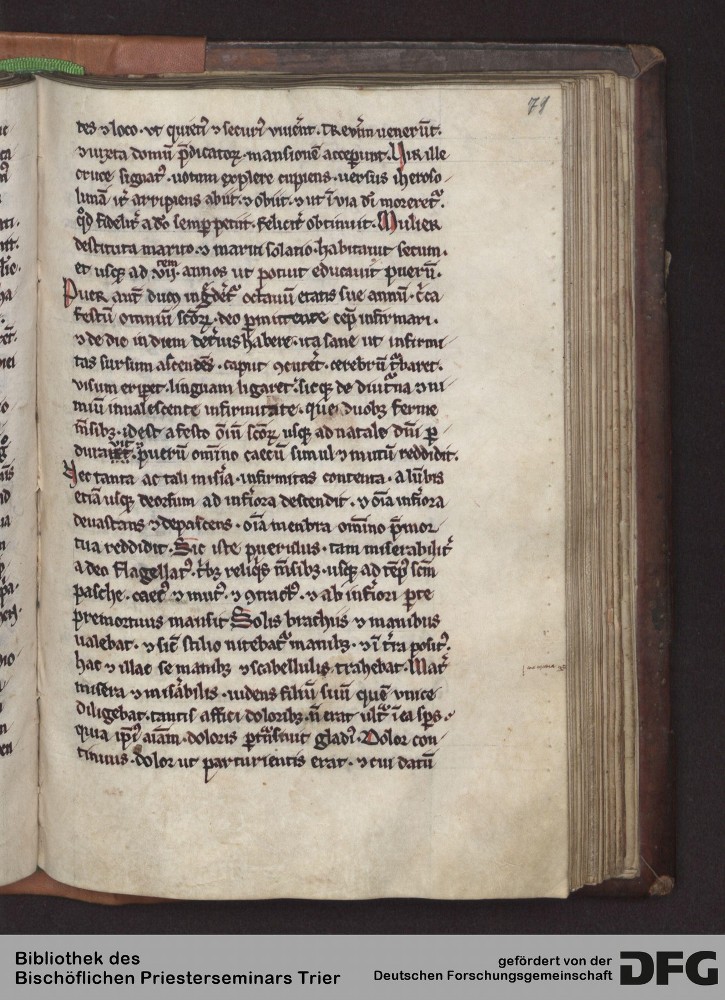 71
tes ⁊ loco · vt quieti᷒ ⁊ securi᷒ viuēnt. Treūim uenerūt.
⁊ iuxta domū p̄dicatoꝝ · mansionē acceperunt. Vir ille
cruce signat᷒ · uotum explere cupiens · uersus ihereso
limā it᷒ arripiens abiit · ⁊ obiit · ⁊ ut ī via dī moreret᷒.
qd̄ fidelit᷒ a dō semꝑ petiit · feliciť obtinuit. Mulier
destituta marito · ⁊ mariti solatio · habitauit secum.
et usqꝫ ad vii. annos ut potuit educauit puerū.
Puer aut̄ octauū etatis sue annū · c̄ca
festū omniū sc̄oꝝ · deo permittente cep̄ infirmari.
⁊ de die in diem deťius habere · ita sane ut infirmi
tas sursum ascendēs · caput ꝯcuteret · cerebrū t᷒baret.
visum eriperet · linguam ligaret · sicqꝫ de diut᷒na ⁊ ni
miū inualescente infirmitate · que duobꝫ ferme
m̄sibꝫ · id est a festo ōiū sc̄oꝝ usqꝫ ad natale dn̄i ꝑ
durauit · puerū omīno caecū simul ⁊ mutū reddidit.
Nec tanta ac tali mis̄ia · infirmitas contenta · a lūbis
etiā usqꝫ deorsum ad inf̄iora descendit · ⁊ oīa inf̄iora
deuastans ⁊ depascens · oīa menbra omīno p̄mor
tua reddidit. Sic iste puerulus · tam miserabiliť
a deo flagellat᷒ · t᷒bꝫ reliq᷒s m̄sibꝫ · usqꝫ ad tēp᷒ sc̄m
pasche · caec᷒ ⁊ mut᷒ · ⁊ ꝯtract᷒ · ⁊ ab inf̄iori ꝑte
premortuus mansit. Solis brachiis ⁊ manibus
ualebat · ⁊ sic̄ stilio nitebat᷒ manibꝫ · ⁊ ī t̄ra posit᷒.
hac ⁊ illac se manibꝫ ⁊ scabellulis trahebat. Mať
misera ⁊ mis̄abilis · uidens filiū suū quē vnice
diligebat · tantis affici doloribꝫ · n̄ erat ult᷒ ī ea sp̄s ·
quia ip̄i᷒ aīam · doloris ꝑt᷒nsiuit gladi᷒. Dolor con
tinuus · dolor ut parturientis erat · ⁊ cui datū
Bibliothek des
Bischöflichen Priesterseminars Trier
gefördert von der
Deutschen Forschungsgemeinschaft
DFG